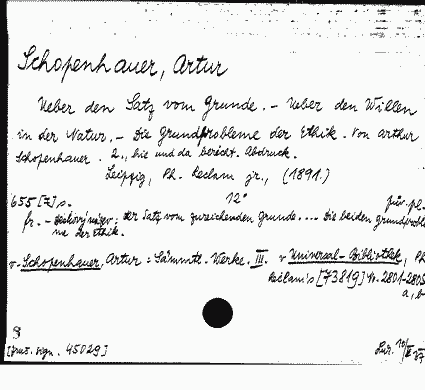 Schopenhauer, Artur
Ueber den Satz vom Grunde. - Ueber den Willen
in der Natur. - Die Grundprobleme der Ethik. Von Arthur
Schopenhauer. 2., hie und da bericht. Abdruck.
Leipzig, Ph. Reclam jr., (1891.)
655 [7] s. 12° pův. pl.
fr. - : der Satz vom zureichenden Grunde.... Die beiden Grundproble
me der Ethik.
v. Schopenhauer, Artur: Sämmtl. Werke. III. v Universal-Bibliothek, Ph
Reclam's [73819] Nr. 2801-2805
a, b
8
[ sign. 45029]